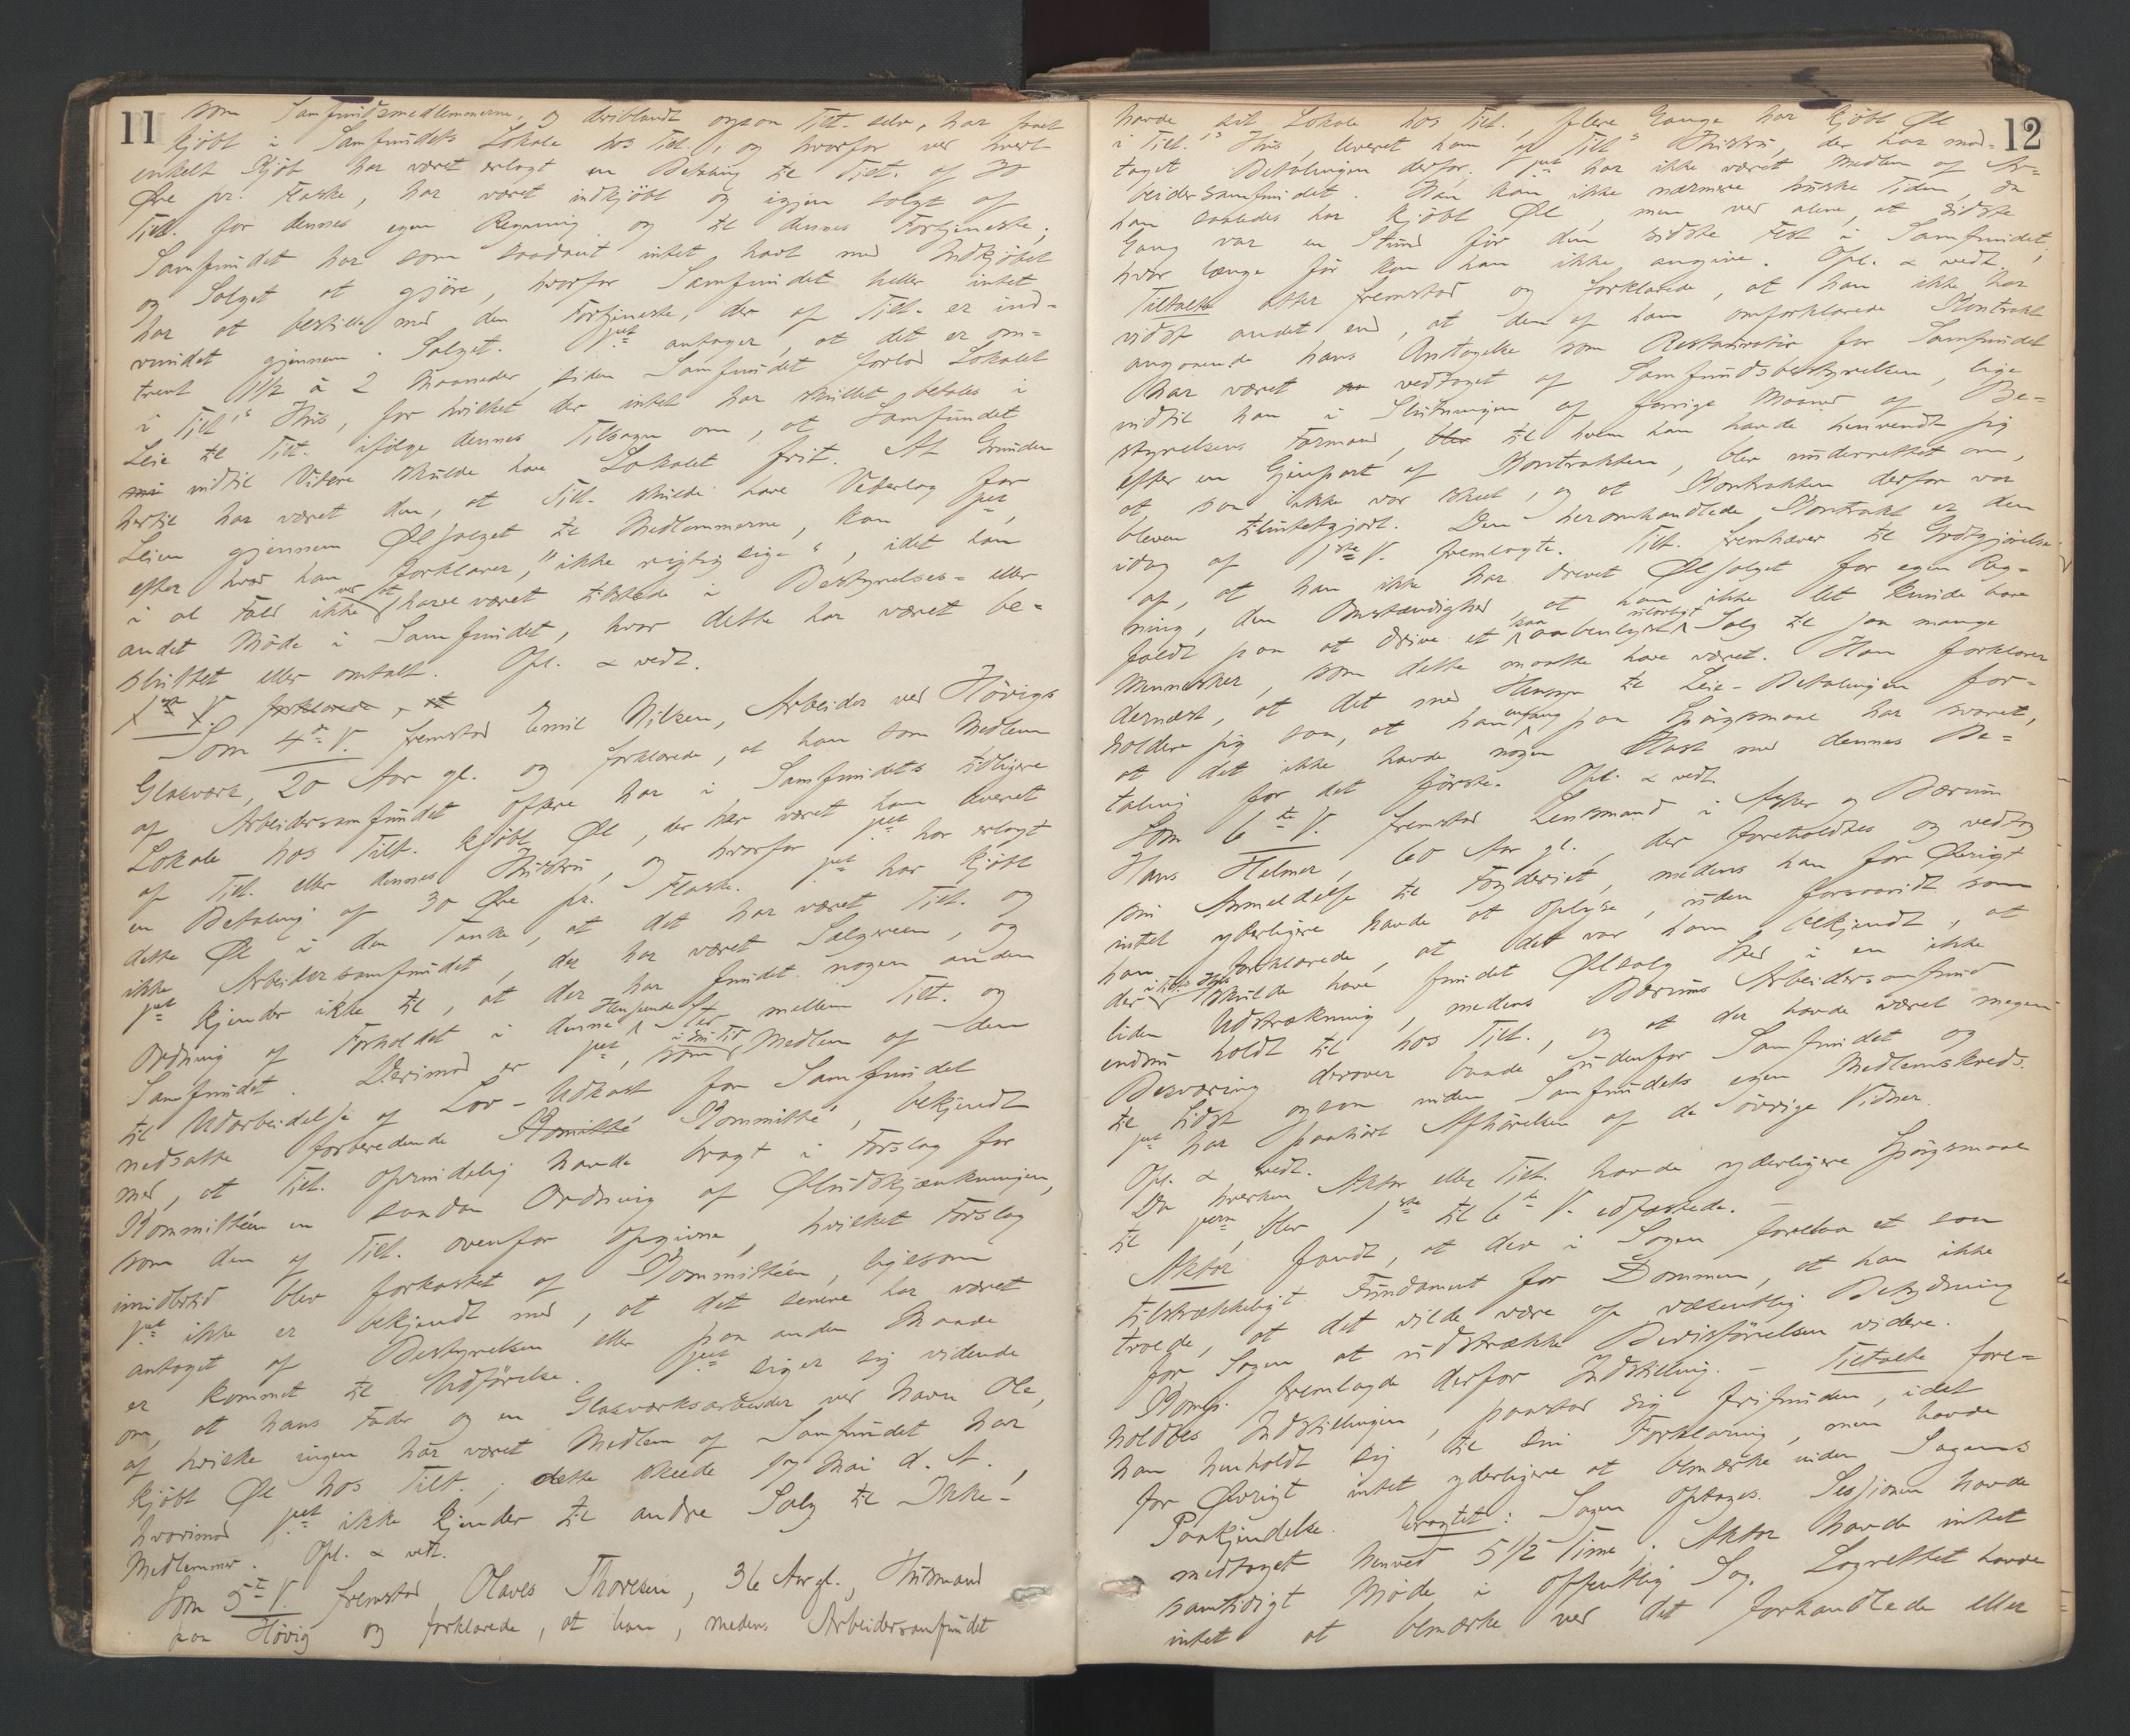 11
som Samfundsmedlemmerne, og deriblandt ogsaa Tilt. selv, har faaet
kjöbt i Samfundets Lokale hos Tilt., og hvorfor ved hvert
enkelt Kjöb har været erlagt en Betaling til Tilt. af 30
Øre pr. Flaske, har været indkjöbt og igjen solgt af
Tilt. for dennes egen Regning og til dennes Fortjeneste;
Samfundet har som saadant intet havt med Indkjöbet
og Salget at gjöre, hvorfor Samfundet heller intet
har at bestille med den Fortjeneste, der af Tilt. er ind-
vundet gjennem Salget. Dpt antager, at det er om-
trent 1 1/2 à 2 Maaneder siden Samfundet forlod Lokalet
i Tilt's Hus, for hvilket der intet har skullet betales i
Leie til Tilt. ifölge dennes Tilsagn om, at Samfundet
indtil Videre skulde have Lokalet frit. At Grunden
hertil har været den, at Tilt. skulde have Vederlag for
Leien gjennem Ølsalget til Medlemmerne, kan Dpt,
efter hvad han forklarer, "ikke rigtig sige", idet han
i al Fald ikke ved at have været tilstede i Bestyrelses- eller
andet Möde i Samfundet, hvor dette har været be-
sluttet eller omtalt. Opl. & vedt.
1ste V. forklarede, at
Som 4de V. fremstod Emil Nilsen, Arbeider ved Hövigs
Glasværk, 20 Aar gl. og forklarede, at han som Medlem
af Arbeidersamfundet oftere har i Samfundets tidligere
Lokale hos Tilt. kjöbt Øl, der har været ham leveret
af Tilt. eller dennes Hustru, og hvorfor Dpt har erlagt
en Betaling af 30 Øre pr. Flaske. Dpt har kjöbt
dette Øl i den Tanke, at det har været Tilt. og
ikke Arbeidersamfundet, der har været Sælgeren, og
Dpt kjender ikke til, at der har fundet nogen anden
Ordning af Forholdet i denne Henseende Sted mellem Tilt. og
Samfundet. Derimod er Dpt, som i sin Tid Medlem af den
til Udarbeidelse af Lov-Udkast for Samfundet
nedsatte forberedende Komitté Kommitté, bekjendt
med, at Tilt. oprindelig havde bragt i Forslag for
Kommittéen en saadan Ordning af Øludskjænkningen,
som den af Tilt. ovenfor opgivne, hvilket Forslag
imidlertid blev forkastet af Kommittéen, ligesom
Dpt ikke er bekjendt med, at det senere har været
antaget af Bestyrelsen eller paa anden Maade
er kommet til Udförelse. Dpt siger sig vidende
om, at hans Fader og en Glasværksarbeider ved Navn Ole,
af hvilke ingen har været Medlem af Samfundet har
kjöbt Øl hos Tilt.; dette skeede 17 Mai d. A.,
hvorimod Dpt ikke kjender til andre Salg til Ikke-
Medlemmer. Opl. & vedt.
Som 5te V. fremstod Olaves Thoresen, 36 Aar gl., Husmand
paa Hövig og forklarede, at han, medens Arbeidersamfundet
12
havde sit Lokale hos Tilt., flere Gange har kjöbt Øl
i Tilt.'s Hus, leveret ham af Tilt's Hustru, der har mod-
taget Betalingen derfor. Dpt har ikke været Medlem af Ar-
beidersamfundet. Han kan ikke nærmere huske Tiden, da
han saaledes har kjöbt Øl, men ved alene, at sidste
Gang var en Stund för den sidste Fest i Samfundet;
hvor længe för kan han ikke angive. Opl. & vedt.
Tiltalte atter fremstod og forklarede, at han ikke har
vidst andet end, at den af ham omforklarede Kontrakt
angaaende hans Antagelse som Restauratör for Samfundet
har været vedtaget af Samfundsbestyrelsen, lige
indtil han i Slutningen af forrige Maaned af Be-
styrelsens Formand, blev til hvem han havde henvendt sig
efter en Gjenpart af Kontrakten, blev underrettet om,
at saa ikke var skeet, og at Kontrakten derfor var
bleven tilintetgjort. Den heromhandlede Kontrakt er den
idag af 1ste V. fremlagte. Tilt. fremhæver til Godtgjörelse
af, at han ikke har drevet Ølsalget for egen Reg-
ning, den Omstændighed, at han ikke let kunde have
faldt paa at drive et saa aabenlyst ulovligt Salg til saa mange
Mennesker, som dette maatte have været. Han forklarer
dernæst, at det med Hensyn til Leie-Betalingen for-
holder sig saa, at han engang paa Spörgsmaal har svaret,
at det ikke havde nogen Hast med dennes Be-
taling for det förste. Opl. & vedt.
Som 6te V. fremstod Lensmand i Asker og Bærum
Hans Halmer, 60 Aar gl., der foreholdtes og vedtog
sin Anmeldelse til Fogderiet, medens han for Øvrigt
intet yderligere havde at oplyse, uden forsaavidt som
han forklarede, at det var ham bekjendt, at
der i Tilt.s Hus skulde have fundet Ølsalg Sted i en ikke
liden Udstrækning, medens Bærums Arbeidersamfund
endnu holdt til hos Tilt., og at der havde været megen
Besværing derover baade udenfor Samfundet og
til Sidst ogsaa inden Samfundets egen Medlemskreds.
Dpt har paahört Afhörelsen af de övrige Vidner.
Opl. & vedt.
Da hverken Aktor eller Tilt. havde yderligere Spörgsmaal
til Dpterne, blev 1ste til 6te V. edfæstede. —
Aktor fandt, at der i Sagen forelaa et saa
tilstrækkeligt Fundament for Dommen, at han ikke
troede, at det vilde være af væsentlig Betydning
for Sagen at udstrække Bevisförelsen videre.
Komp. fremlagde derfor Indstilling. — Tiltalte fore-
holdtes Indstillingen, paastod sig frifunden, idet
han henholdt sig til sin Forklaring, men havde
for Øvrigt intet yderligere at bemærke inden Sagens
Paakjendelse. Eragtet: Sagen optages. Sessionen havde
medtaget henved 5 1/2 Time. Aktor havde intet
samtidigt Möde i offentlig Sag. Lagrettet havde
intet at bemærke ved det forhandlede eller